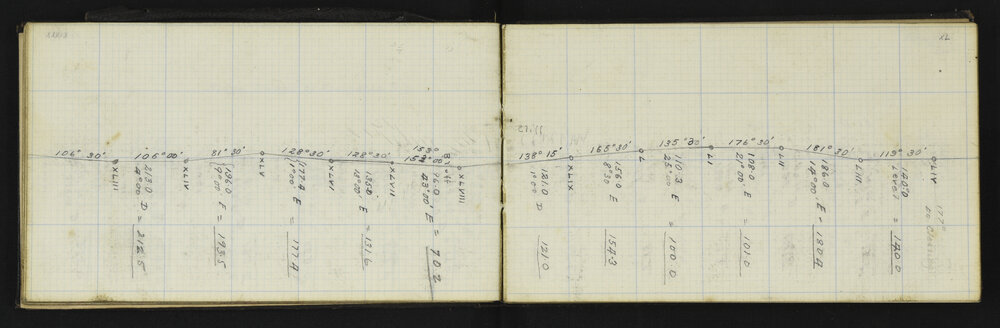 XXXIX
106° 30'
XLIII
106° 00'
213.0
4° 00' D = 212.5
XLIV
81° 30'
196.0
9° 00' E = 193.5
XLV
128° 30'
177.9
E = 177.4
XLVI
128° 30'
135.0
E = 131.6
XLVII
153°
153° 00'
76.0
23° 00' E = 70.2
XLVIII
XL
138° 15'
121.0
1° 00' D
121.0
XLIX
165° 30'
156.0
8° 30' E = 154.3
L
135° 30'
110.3
25° 00' E = 100.0
LI
176° 30'
108.0
21° 00' E = 101.0
LII
181° 30'
186.0
14° 00' E = 180.4
LIII
119° 30'
140.0
Level = 140.0
LIV
177°
to Clearing